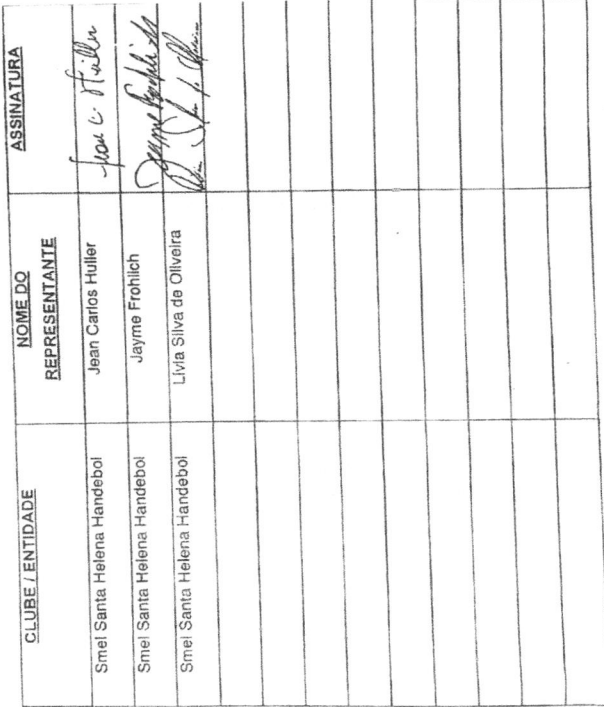 CLUBE / ENTIDADE
NOME DO
REPRESENTANTE
ASSINATURA
Smel Santa Helena Handebol
Jean Carlos Huller
Jean C. Huller
Smel Santa Helena Handebol
Jayme Frohlich
Jayme Frohlich
Smel Santa Helena Handebol
Lívia Silva de Oliveira